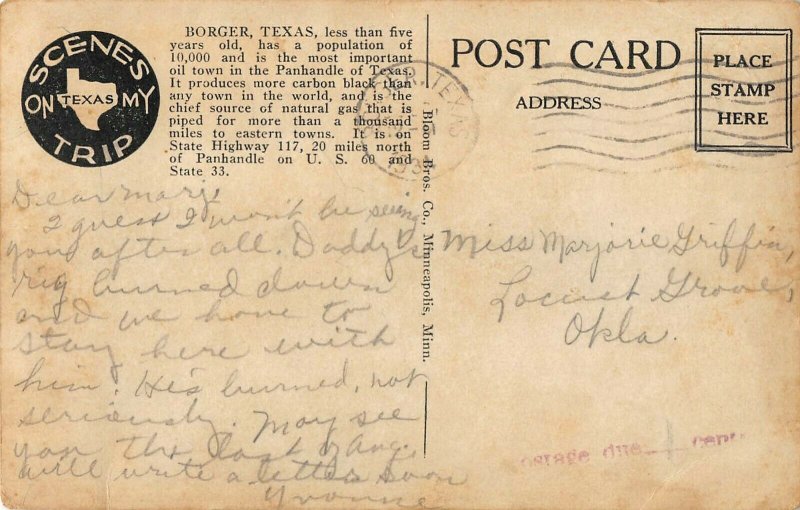 SCENES
ON TEXAS MY
TRIP
BORGER, TEXAS, less than five
years old, has a population of
10,000 and is the most important
oil town in the Panhandle of Texas.
It produces more carbon black than
any town in the world, and is the
chief source of natural gas that is
piped for more than a thousand
miles to eastern towns. It is on
State Highway 117, 20 miles north
of Panhandle on U. S. 60 and
State 33.
Dear Marj,
I guess I won't be seeing
you after all. Daddy's
rig burned down
and we have to
stay here with
him. He's burned, not
seriously. May see
you the last of Aug.
Will write a letter soon
Yvonne
Bloom Bros. Co., Minneapolis, Minn.
POST CARD
ADDRESS
PLACE
STAMP
HERE
TEX
Miss Marjorie Griffin,
Locust Grove,
Okla.
ostage due 1 cen